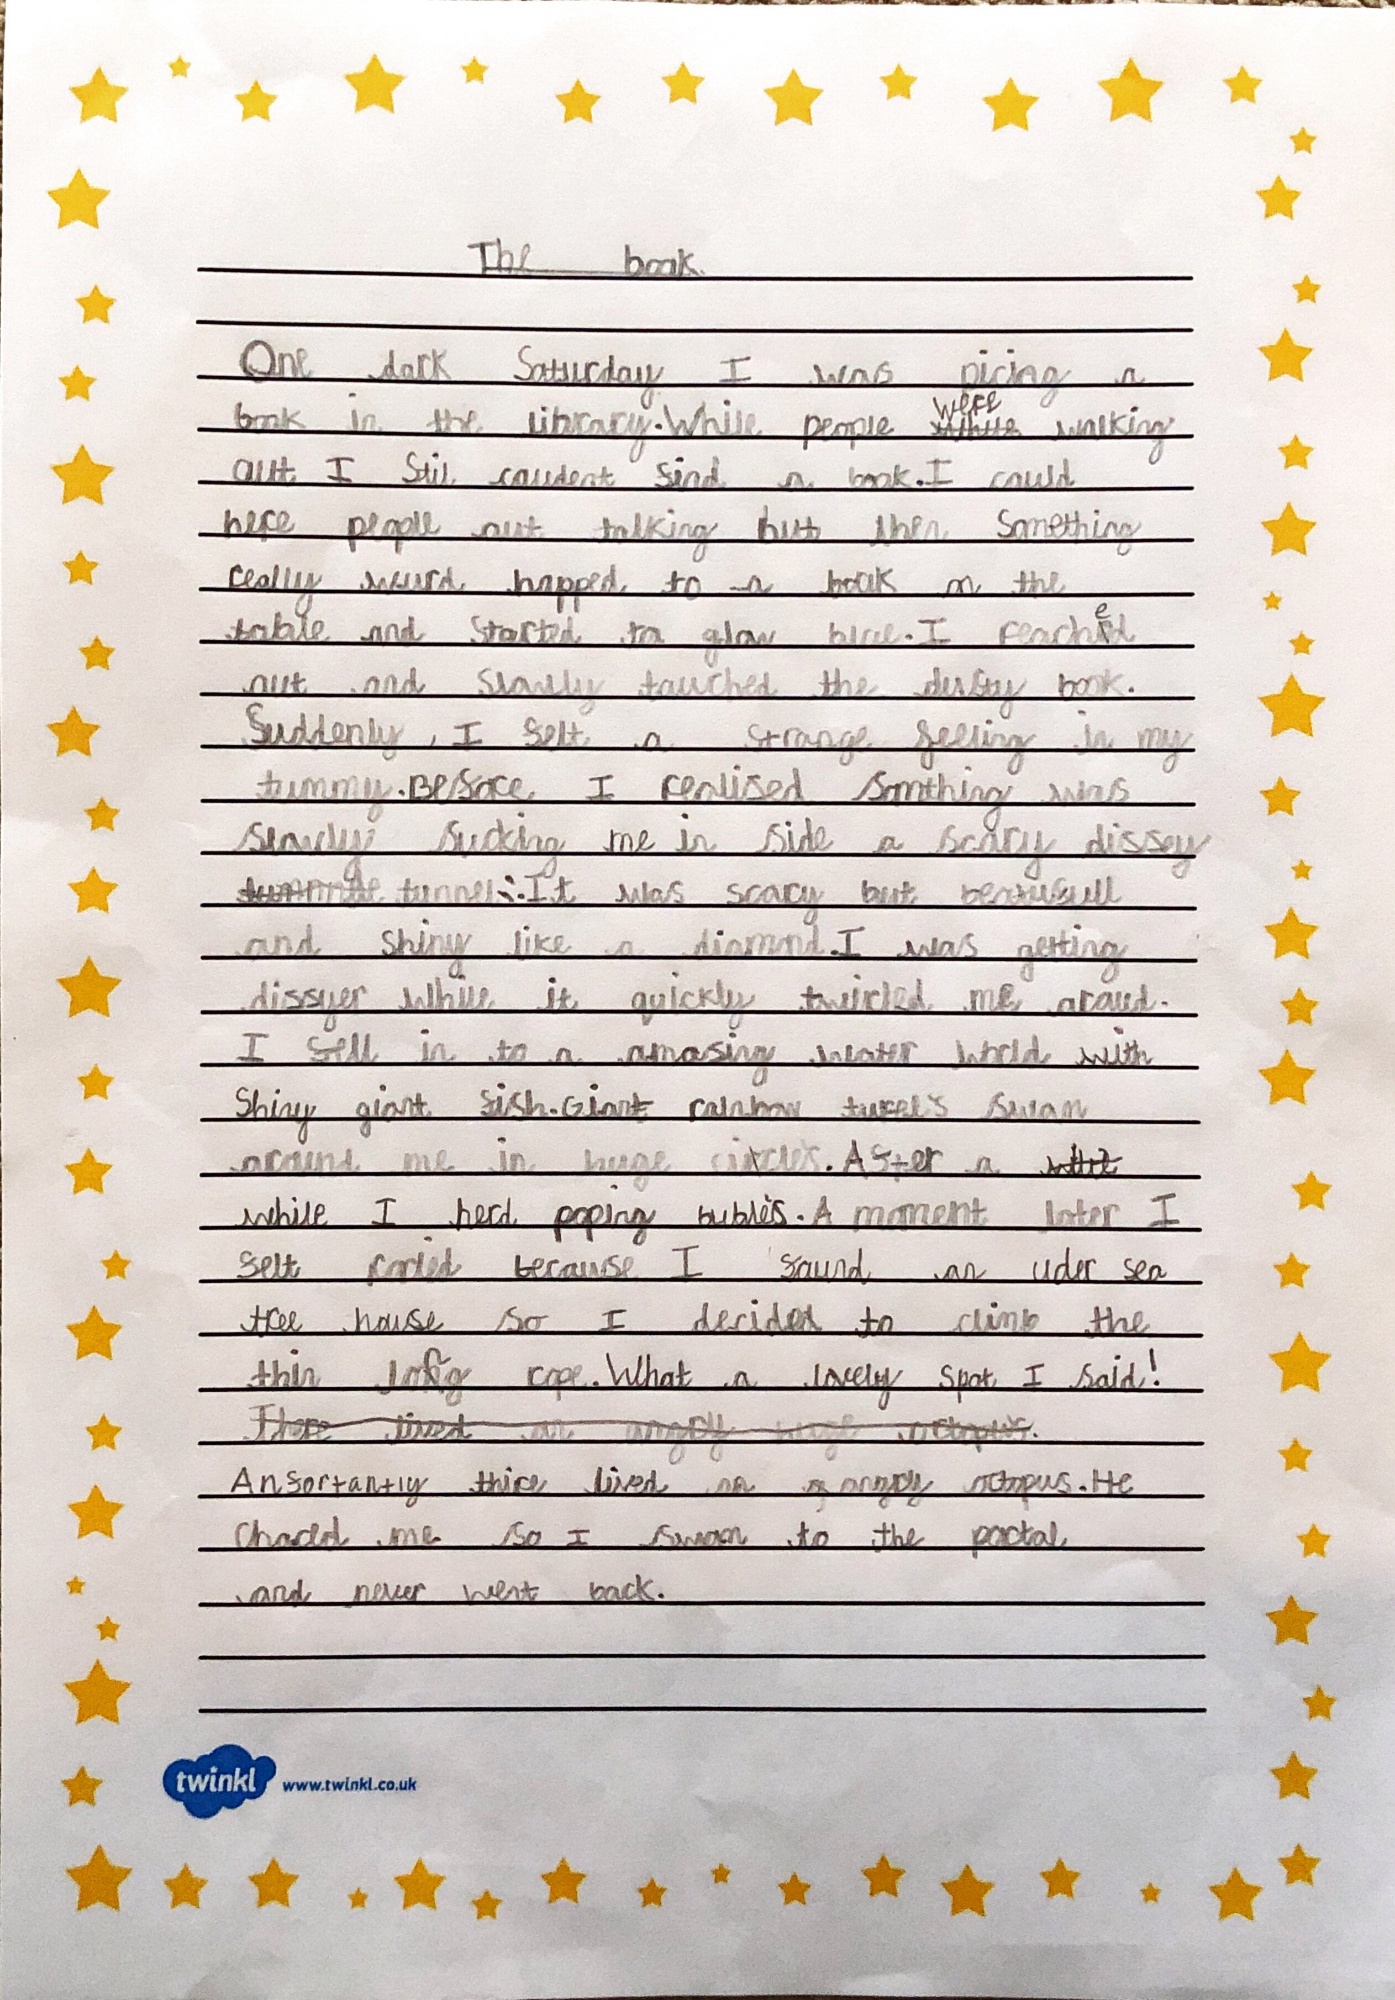 The book.
One dark Saturday I was picing a
book in the library. While people were walking
out I Still coudent find a book. I could
here people out talking but then Something
really weurd happed to a book on the
table and started to glow blue. I reached
out and slowly touched the dusty book.
Suddenly, I felt a strange feeling in my
tummy. Before I realised somthing was
slowly sucking me in side a scary dissey
tunnel. It was scary but beautufull
and shiny like a diamond. I was getting
dissyer while it quickly twirled me araud.
I fell in to a amasing water world with
Shiny giant fish. Giant rainbow turel's swam
around me in huge circles. After a
while I herd poping buble's. A moment later I
felt because I found an uder sea
tree house so I decided to climb the
thin long rope. What a lovely spot I said!
There lived an angry huge octopus.
Anfortantly thire lived an angry octopus. He
Chaced me so I swam to the portal
and never went back.
twinkl www.twinkl.co.uk